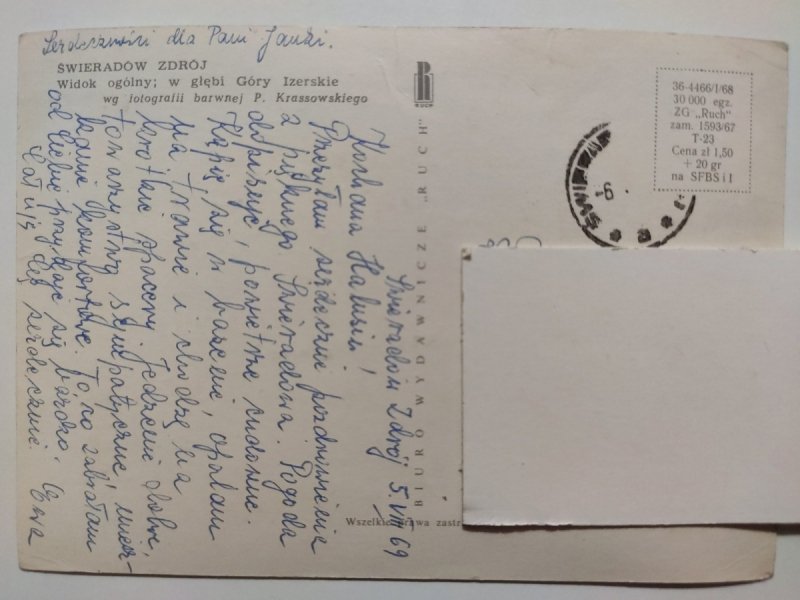 Serdeczności dla Pani Janki.
ŚWIERADÓW ZDRÓJ
Widok ogólny; w głębi Góry Izerskie
wg fotografii barwnej P. Krassowskiego
RUCH
BIURO WYDAWNICZE „RUCH”
36-4466/I/68
30 000 egz.
ZG „Ruch”
zam. 1593/67
T-23
Cena zł 1,50
+ 20 gr
na SFBS i I
-6.
Świeradów Zdrój 5.VII 69
Kochana Halusiu!
Przesyłam serdeczne pozdrowienia
z pięknego Świeradowa. Pogoda
dopisuje, powietrze cudowne.
Kąpię się w basenie, opalam
na trawie i chodzę na
krótkie spacery. Jedzenie dobre,
towarzystwo sympatyczne, miesz-
kanie komfortowe. To co zabrałam
od Ciebie przydaje się bardzo.
Całuję Cię serdecznie. Ewa
Wszelkie prawa zastr